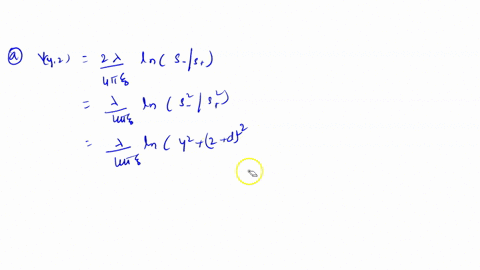 (a) V(y,z) = 2λ/4πε₀ ln( s₋/s₊)
= λ/4πε₀ ln ( s₋²/s₊²)
= λ/4πε₀ ln ( y²+(z+d)²